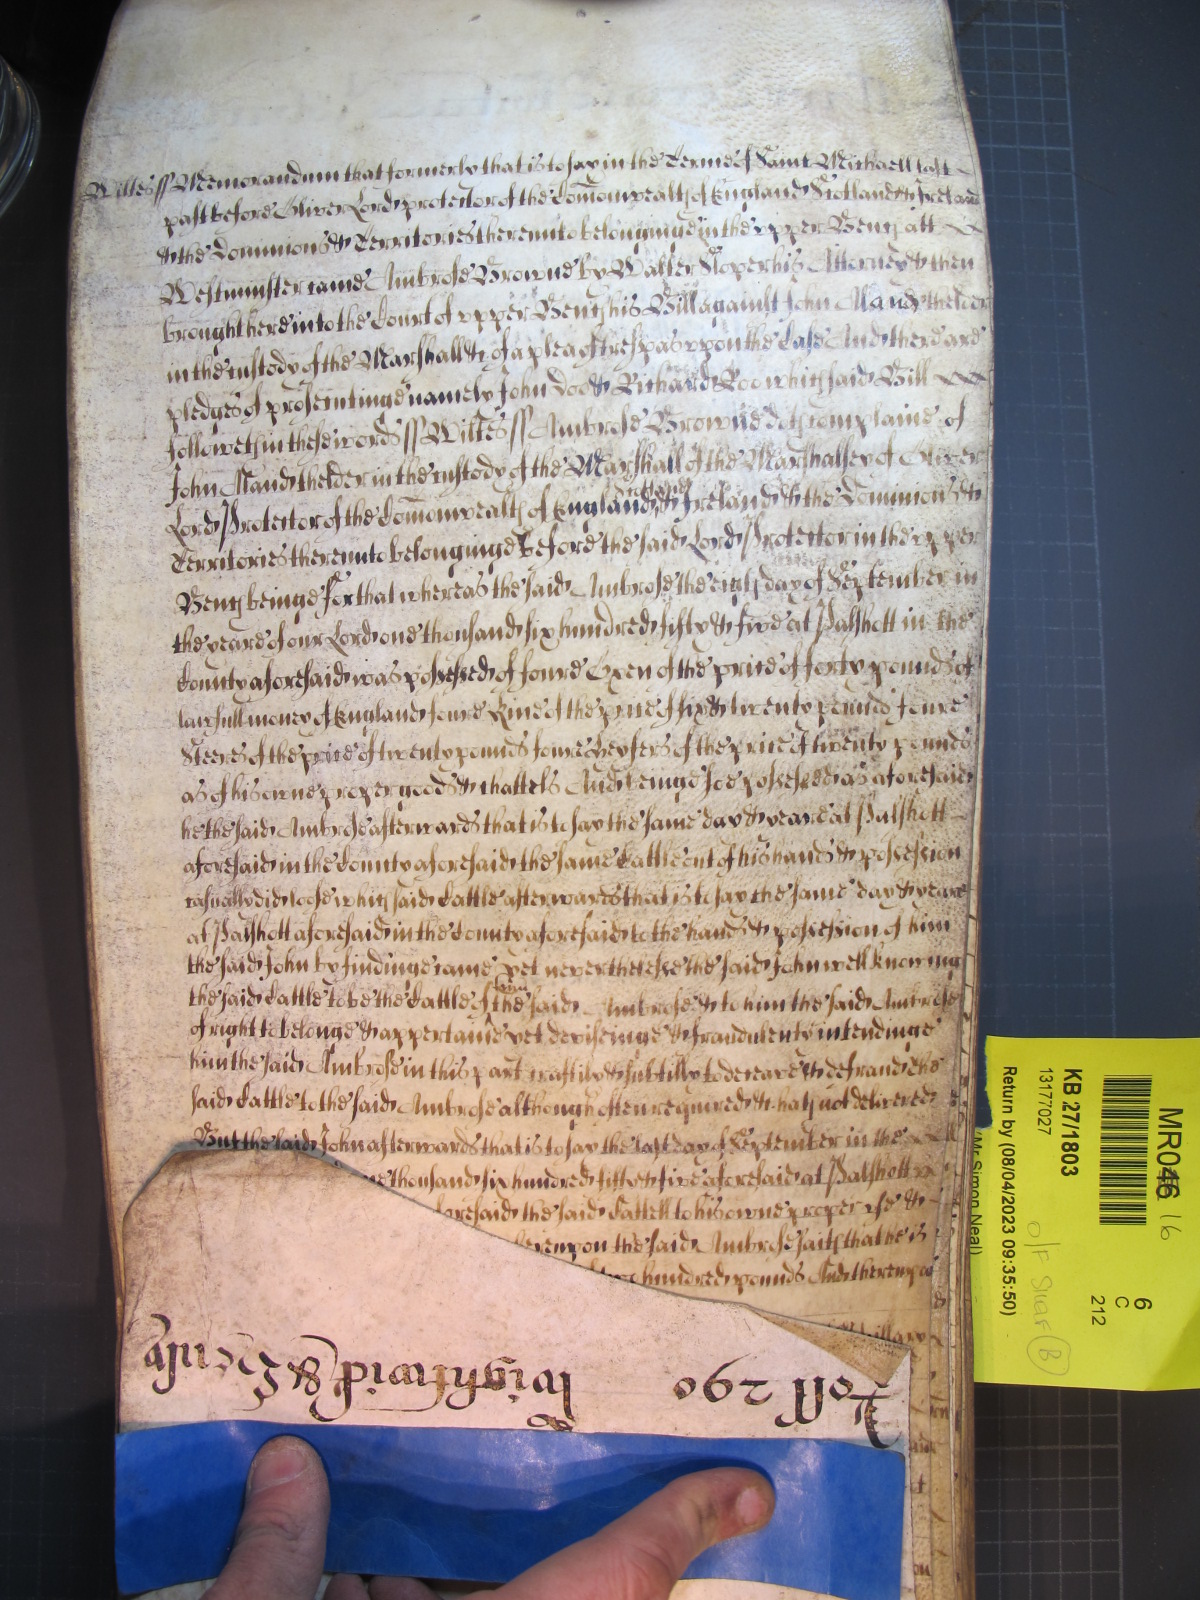 Wiltes ss Memorandum that formerly that is to say in the Terme of Saint Michaell last
past before Oliver Lord protector of the Comonwealth of England Scotland & Ireland
& the dominions & Territories thereunto belonginge in the upper Bench att
Westminster came Ambrose Browne by Walter Sloper his Attorney & then
brought here into the Court of upper Bench his Bill against John thelder
in the custody of the Marshall &c of a plea of trespas uppon the Case And there are
pledges of prosecutinge namely John Doo & Richard Roo which said Bill
followeth in these words ss Wiltes ss Ambrose Browne doth complaine of
John thelder in the custody of the Marshall of the Marshalsey of Oliver
Lord Protector of the Comonwealth of England Scotland & Ireland & the Dominions &
Territories thereunto belonginge before the said Lord Protector in the upper
Bench beinge For that whereas the said Ambrose the eigth day of September in
the yeare of our Lord one thousand six hundred fifty & five at Palshott in the
County aforesaid was possessed of foure Oxen of the price of forty pounds of
lawfull money of England foure Kine of the price of six & twenty pounds foure
Steeres of the price of twenty pounds foure heyfers of the price of twenty pounds
as of his owne proper goods & chattels And beinge soe possessed as aforesaid
he the said Ambrose afterwards that is to say the same day & yeare at Palshott
aforesaid in the County aforesaid the same Cattle out of his hands & possession
casually did loose which said Cattle afterwards that is to say the same day & yeare
at Palshott aforesaid in the County aforesaid to the hands & possession of him
the said John by findinge came yet neverthelesse the said John well knowing
the said Cattle to be the Cattle of him the said Ambrose & to him the said Ambrose
of right to belonge & appertaine yet deviseinge & fraudulently intendinge
him the said Ambrose in this part craftily & subtilly to deceave & defraud the
said Cattle to the said Ambrose although often required & hath not delivered
But the said John afterwards that is to say the last day of September in the
one thousand six hundred fifty & five aforesaid at Palshott
aforesaid the said Cattell to his owne proper use &
hereupon the said Ambrose saith that he is
hundred pounds And thereupon
Hillary
Roll 290
wightwick &
MR046 16
6
C
212
KB 27/1803
13177027
Return by (08/04/2023 09:35:50)
(Mr Simon Neal)
O/F Shelf B